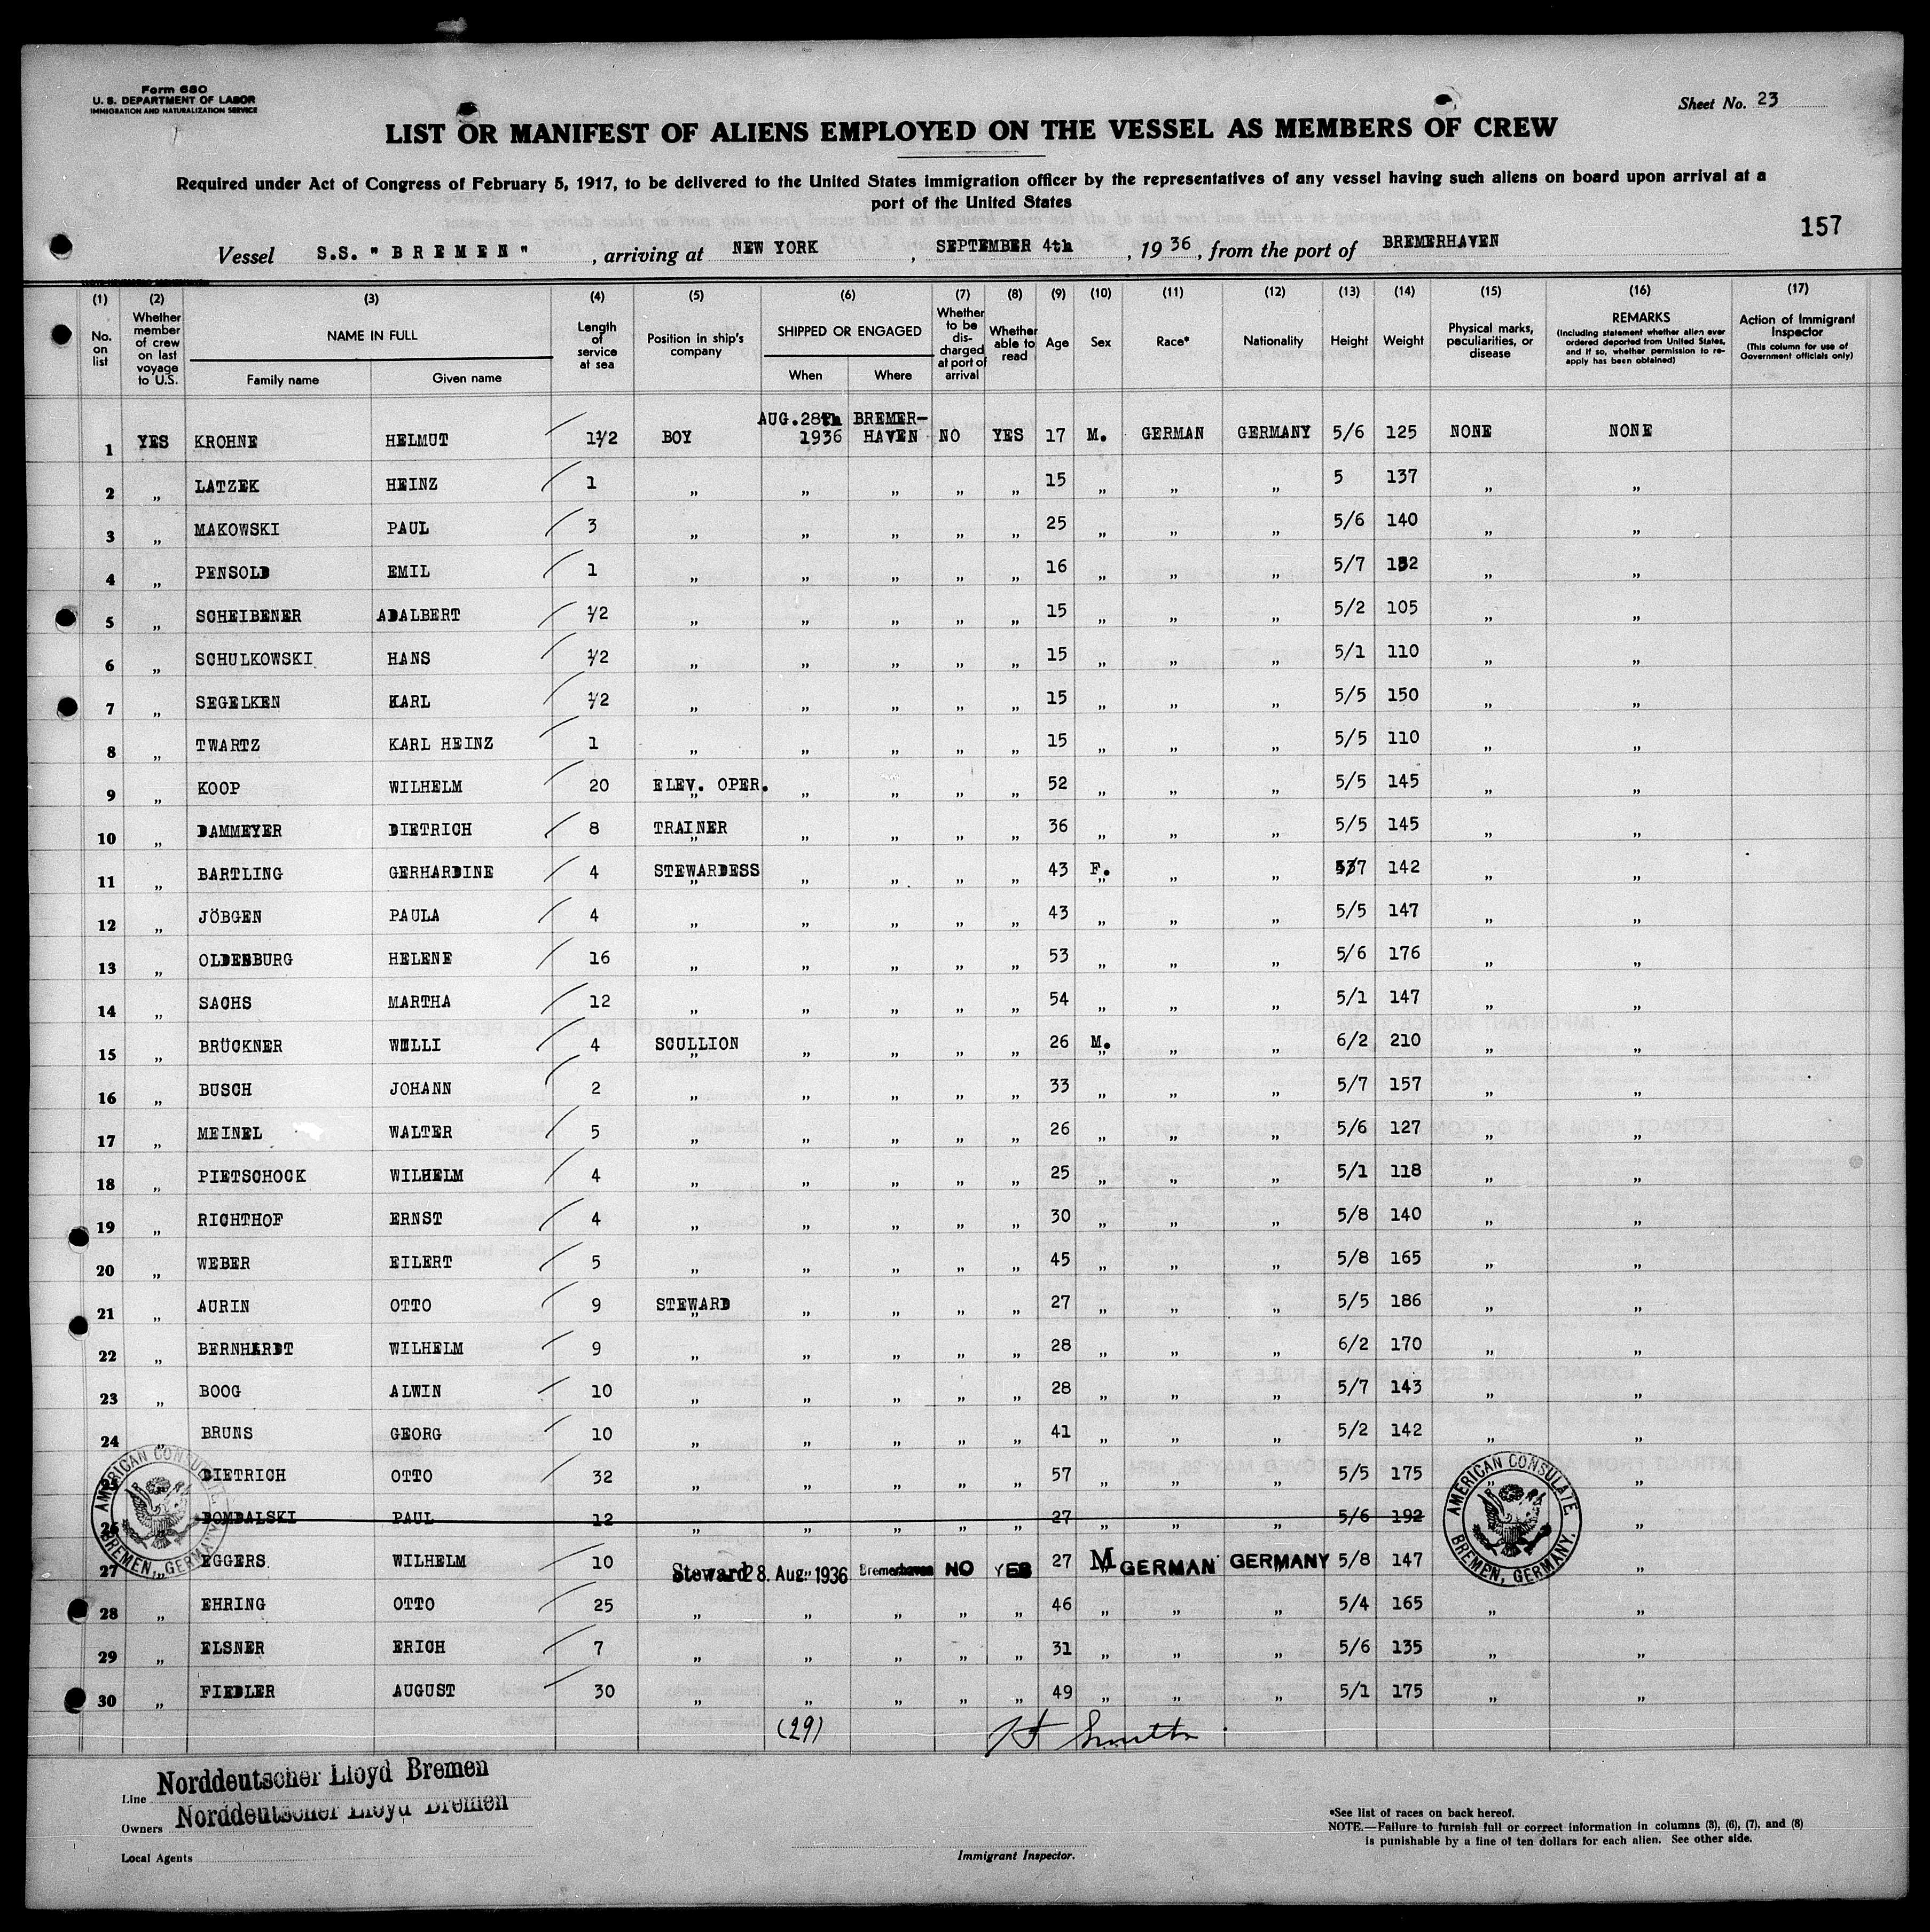 Form 680
U. S. DEPARTMENT OF LABOR
IMMIGRATION AND NATURALIZATION SERVICE
Sheet No. 23
LIST OR MANIFEST OF ALIENS EMPLOYED ON THE VESSEL AS MEMBERS OF CREW
Required under Act of Congress of February 5, 1917, to be delivered to the United States immigration officer by the representatives of any vessel having such aliens on board upon arrival at a
port of the United States
157
Vessel S.S. "BREMEN", arriving at NEW YORK, SEPTEMBER 4th, 1936, from the port of BREMERHAVEN
(1) (2) (3) (4) (5) (6) (7) (8) (9) (10) (11) (12) (13) (14) (15) (16) (17)
No. on list
Whether member of crew on last voyage to U.S.
NAME IN FULL
Family name Given name
Length of service at sea
Position in ship's company
SHIPPED OR ENGAGED
When Where
Whether to be discharged at port of arrival
Whether able to read
Age
Sex
Race*
Nationality
Height
Weight
Physical marks, peculiarities, or disease
REMARKS
(Including statement whether alien ever ordered deported from United States, and if so, whether permission to reapply has been obtained)
Action of Immigrant Inspector
(This column for use of Government officials only)
1 YES KROHNE HELMUT 1½ BOY AUG.28th 1936 BREMER-HAVEN NO YES 17 M. GERMAN GERMANY 5/6 125 NONE NONE
2 „ LATZEK HEINZ 1 „ „ „ „ „ 15 „ „ „ 5 137 „ „
3 „ MAKOWSKI PAUL 3 „ „ „ „ „ 25 „ „ „ 5/6 140 „ „
4 „ PENSOLD EMIL 1 „ „ „ „ „ 16 „ „ „ 5/7 132 „ „
5 „ SCHEIBENER ADALBERT ½ „ „ „ „ „ 15 „ „ „ 5/2 105 „ „
6 „ SCHULKOWSKI HANS ½ „ „ „ „ „ 15 „ „ „ 5/1 110 „ „
7 „ SEGELKEN KARL ½ „ „ „ „ „ 15 „ „ „ 5/5 150 „ „
8 „ TWARTZ KARL HEINZ 1 „ „ „ „ „ 15 „ „ „ 5/5 110 „ „
9 „ KOOP WILHELM 20 ELEV. OPER. „ „ „ „ 52 „ „ „ 5/5 145 „ „
10 „ DAMMEYER DIETRICH 8 TRAINER „ „ „ „ 36 „ „ „ 5/5 145 „ „
11 „ BARTLING GERHARDINE 4 STEWARDESS „ „ „ „ 43 F. „ „ 5/7 142 „ „
12 „ JÖBGEN PAULA 4 „ „ „ „ „ 43 „ „ „ 5/5 147 „ „
13 „ OLDENBURG HELENE 16 „ „ „ „ „ 53 „ „ „ 5/6 176 „ „
14 „ SACHS MARTHA 12 „ „ „ „ „ 54 „ „ „ 5/1 147 „ „
15 „ BRÜCKNER WILLI 4 SCULLION „ „ „ „ 26 M. „ „ 6/2 210 „ „
16 „ BUSCH JOHANN 2 „ „ „ „ „ 33 „ „ „ 5/7 157 „ „
17 „ MEINEL WALTER 5 „ „ „ „ „ 26 „ „ „ 5/6 127 „ „
18 „ PIETSCHOCK WILHELM 4 „ „ „ „ „ 25 „ „ „ 5/1 118 „ „
19 „ RICHTHOF ERNST 4 „ „ „ „ „ 30 „ „ „ 5/8 140 „ „
20 „ WEBER EILERT 5 „ „ „ „ „ 45 „ „ „ 5/8 165 „ „
21 „ AURIN OTTO 9 STEWARD „ „ „ „ 27 „ „ „ 5/5 186 „ „
22 „ BERNHARDT WILHELM 9 „ „ „ „ „ 28 „ „ „ 6/2 170 „ „
23 „ BOOG ALWIN 10 „ „ „ „ „ 28 „ „ „ 5/7 143 „ „
24 „ BRUNS GEORG 10 „ „ „ „ „ 41 „ „ „ 5/2 142 „ „
25 DIETRICH OTTO 32 „ „ „ „ „ 57 „ „ „ 5/5 175 „ „
26 DOMBALSKI PAUL 12 „ „ „ „ „ 27 „ „ „ 5/6 192 „
27 „ EGGERS WILHELM 10 Steward 28. Aug. 1936 Bremerhaven NO YES 27 M GERMAN GERMANY 5/8 147 „
28 „ EHRING OTTO 25 „ „ „ „ „ 46 „ „ „ 5/4 165 „ „
29 „ ELSNER ERICH 7 „ „ „ „ „ 31 „ „ „ 5/6 135 „ „
30 „ FIEDLER AUGUST 30 „ „ „ „ „ 49 „ „ „ 5/1 175 „ „
AMERICAN CONSULATE, BREMEN, GERMANY.
AMERICAN CONSULATE, BREMEN, GERMANY.
(29) Smith
Line Norddeutscher Lloyd Bremen
Owners Norddeutscher Lloyd Bremen
Local Agents
Immigrant Inspector.
*See list of races on back hereof.
NOTE.—Failure to furnish full or correct information in columns (3), (6), (7), and (8)
is punishable by a fine of ten dollars for each alien. See other side.